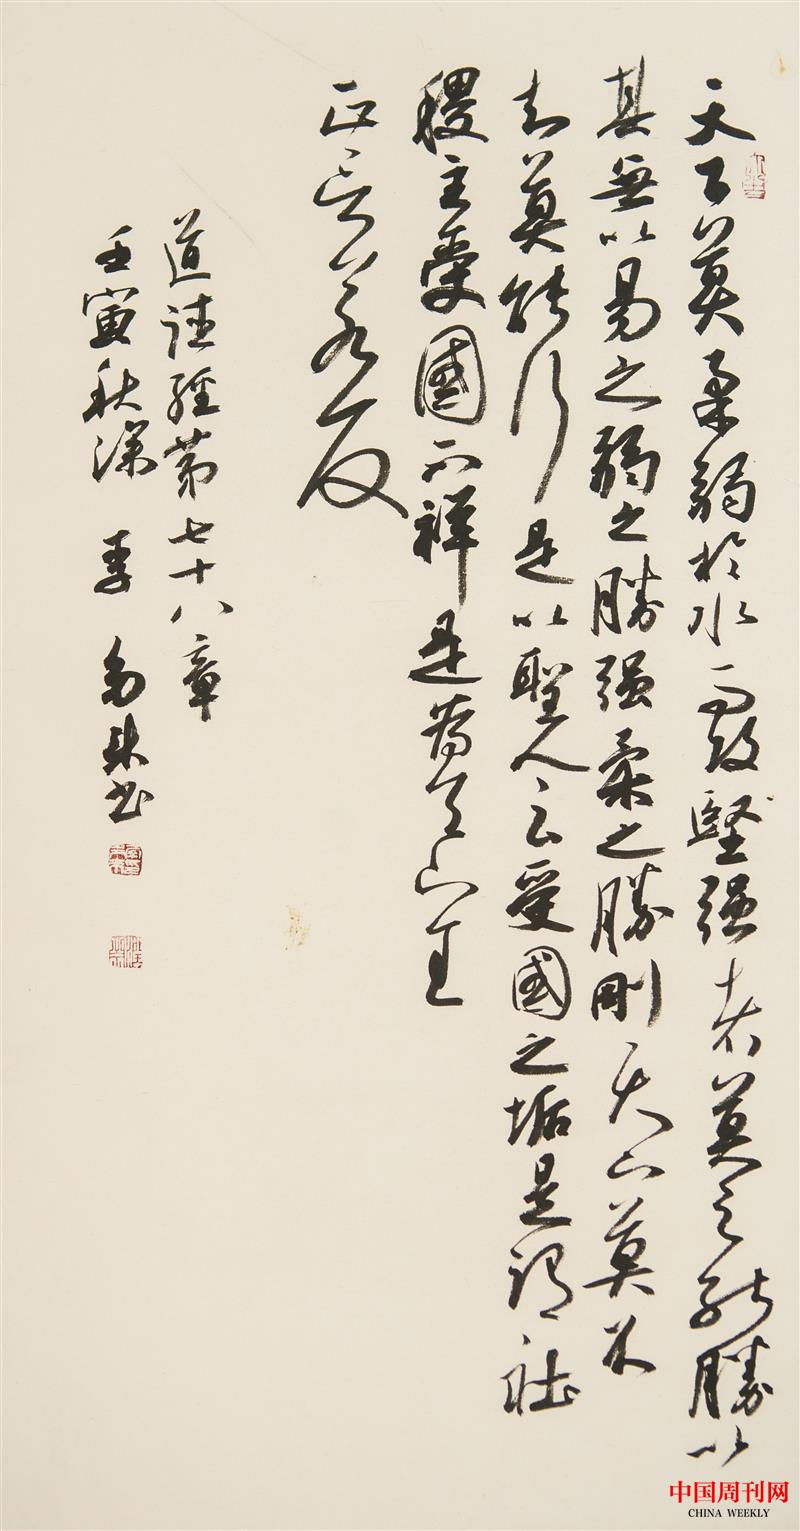 天下莫柔弱於水而攻堅强者莫之能勝以
其無以易之弱之勝强柔之勝剛天下莫不
知莫能行是以聖人云受國之垢是謂社
稷主受國不祥是為天下王
正言若反
道德經第七十八章
壬寅秋深 李 書
中国周刊网
CHINA WEEKLY